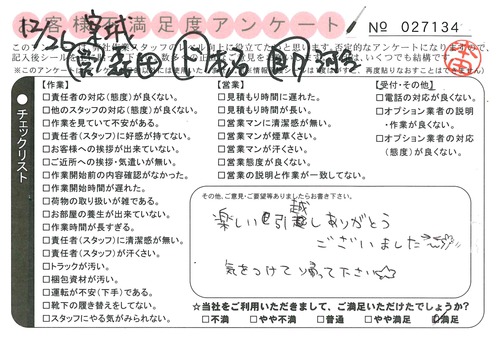 お客様不満足度アンケート
No 027134
12/26
宮城
【作業】
□責任者の対応(態度)が良くない。
□他のスタッフの対応(態度)が良くない。
□作業を見ていて不安がある。
□責任者(スタッフ)に好感が持てない。
□お客様への挨拶が出来ていない。
□ご近所への挨拶・気遣いが無い。
□作業開始前の内容確認がなかった。
□作業開始時間が遅れた。
□荷物の取り扱いが雑である。
□お部屋の養生が出来ていない。
□作業時間が長すぎる。
□責任者(スタッフ)に清潔感が無い。
□責任者(スタッフ)が汗くさい。
□トラックが汚い。
□梱包資材が汚い。
□運転が不安(下手)である。
□靴下の履き替えをしてない。
□スタッフにやる気がみられない。
【営業】
□見積もり時間が長い。
□見積もり時間に遅れた。
□営業マンに清潔感が無い。
□営業マンが煙草くさい。
□営業マンが汗くさい。
□営業態度が良くない。
□営業の説明と作業が一致してない。
【受付・その他】
□電話の対応が良くない。
□オプション業者の説明
・作業が良くない。
□オプション業者の対応
(態度)が良くない。
チェックリスト
その他、ご意見・ご要望等ありましたらお書き下さい。
楽しい引越しありがとう
ございました
気をつけて帰って下さい☆
☆当社をご利用いただきまして、ご満足いただけたでしょうか?
□不満 □やや不満 □普通 □やや満足 ☑満足